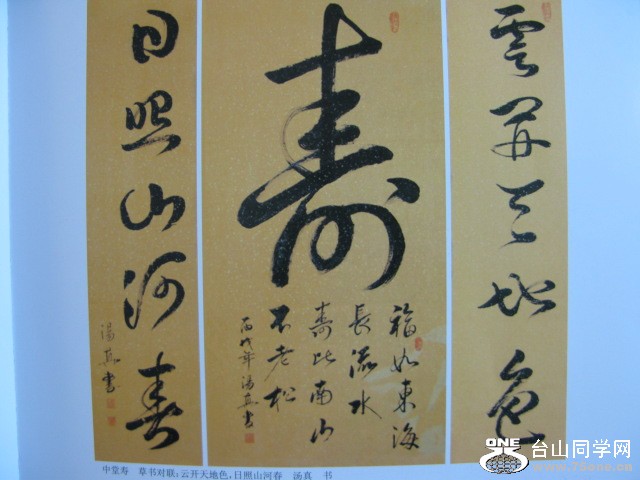 雲開天地色
壽
福如東海
長流水
壽比南山
不老松
丙戌年湯真書
日照山河春
湯真書
中堂寿 草书对联:云开天地色,日照山河春 汤真 书
ONE
台山同学网
www.75one.com